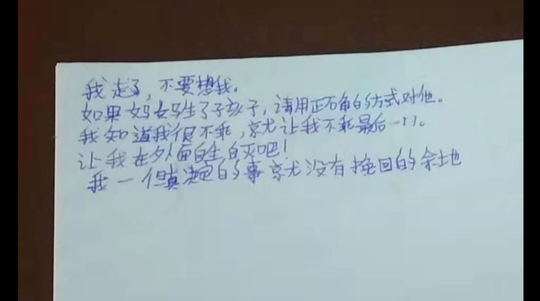 我走了，不要想我。
如果妈妈生了孩子，请用正确的方式对他。
我知道我很不乖，就让我不乖最后一
让我在外面自生自灭吧！
我一但决定的事就没有挽回的余地